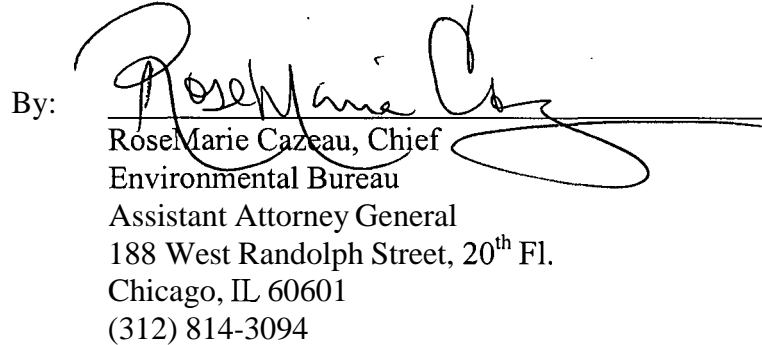 By: RoseMarie Caz
RoseMarie Cazeau, Chief
Environmental Bureau
Assistant Attorney General
188 West Randolph Street, 20th Fl.
Chicago, IL 60601
(312) 814-3094